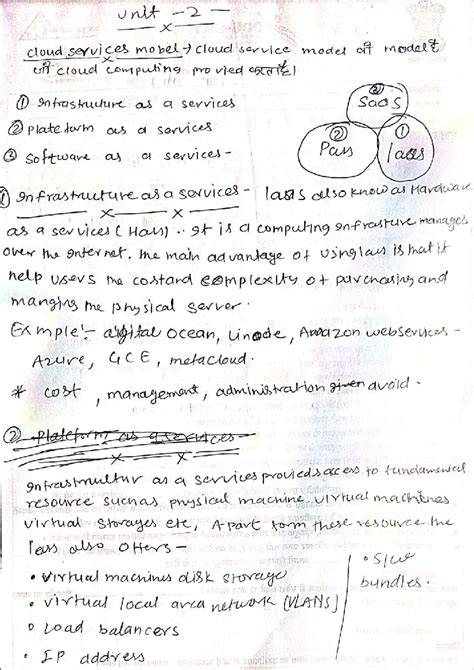 unit - 2 -
cloud services mobel → cloud service model वो model है
जो cloud computing provied करता है।
① Infrastructure as a services
② Plateform as a services
③ Software as a services -
③ SaaS
② Paas
① Iaas
① Infrastructure as a services - Iaas also know as Hardware
as a services (Haas) .. It is a computing infrasture manages
over the internet. the main advantage of using Iaas is that it
help users the cost and complexity of purchasing and
manging the physical server.
Exmple :- digital ocean, Linode, Amazon web services -
Azure, GCE, metacloud.
* cost, management, administration avoid.
② Plateform as a services
Infrastructur as a services provieds access to fundamental
resource suchas physical machine, virtual machines
virtual storages etc, Apart form these resource the
Iaas also offers -
• virtual machines disk storage
• virtual local area network (VLANs)
• Load balancers
• IP address
• S/w
bundles.